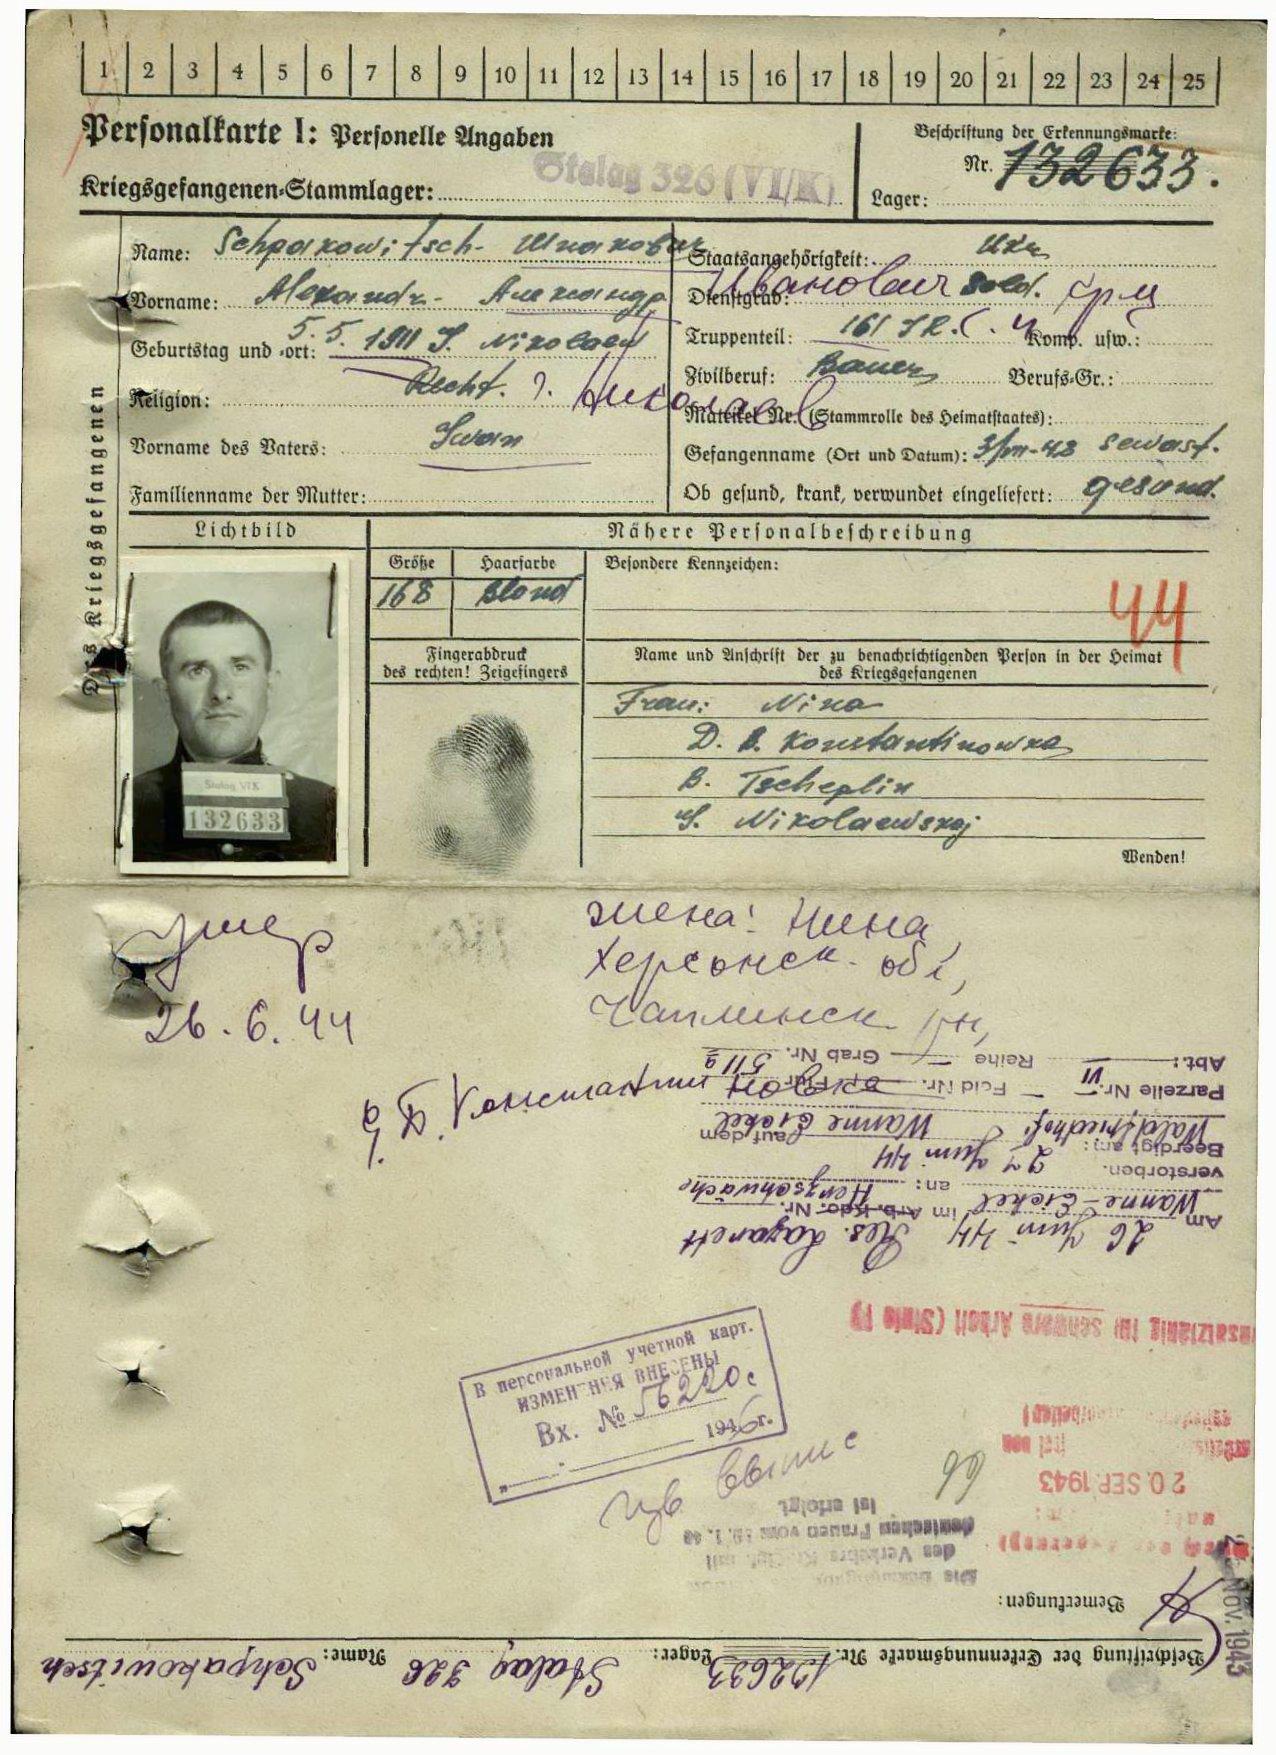 1 2 3 4 5 6 7 8 9 10 11 12 13 14 15 16 17 18 19 20 21 22 23 24 25
Personalkarte I: Personelle Angaben
Kriegsgefangenen-Stammlager: Stalag 326 (VI/K)
Beschriftung der Erkennungsmarke:
Nr. 132633.
Lager:
Des Kriegsgefangenen
Name: Schpakowitsch - Шпакович
Vorname: Alexandr - Александр Иванович
Geburtstag und -ort: 5.5.1911 S. Nikolaew
Religion: Николаев
Vorname des Vaters: Iwan
Familienname der Mutter:
Staatsangehörigkeit: Ukr
Dienstgrad: Sold.
Truppenteil: 161 Komp. usw.:
Zivilberuf: Bauer Berufs-Gr.:
Matrikel Nr. (Stammrolle des Heimatstaates):
Gefangenname (Ort und Datum): Sewast.
Ob gesund, krank, verwundet eingeliefert: gesund.
Lichtbild
Nähere Personalbeschreibung
Größe Haarfarbe Besondere Kennzeichen:
168 Blond
44
Stalag VI K
132633
Fingerabdruck
des rechten! Zeigefingers
Name und Anschrift der zu benachrichtigenden Person in der Heimat
des Kriegsgefangenen
Frau: Nina
D. B. Konstantinowka
B. Tscheplin
S. Nikolaewskoj
Wenden!
умер
26.6.44
жена: Нина
Херсонск. об.,
Чаплинск. рн,
Д. Константиновка
Am 26 Juni 44 Res. Lazarett
Wanne-Eickel im Arb. Kdo. Nr.
an: Herzschwäche
verstorben.
Beerdigt am: 27 Juni 44 auf dem
Waldfriedhof Wanne Eickel
Parzelle Nr. VI Feld Nr. Flur
Abt.: Reihe Grab Nr. 511 a
Einsatzfähig für schwere Arbeit (Stufe I)
В персональной учетной карт.
ИЗМЕНЕНИЯ ВНЕСЕНЫ
Вх. № 56220с
1946 г.
20. SEP. 1943
des Verkehrs mit
deutschen Frauen vom
ist erfolgt
NOV. 1943
Bemerkungen:
Beschriftung der Erkennungsmarke Nr. 132633 Lager: Stalag 326 Name: Schpakowitsch